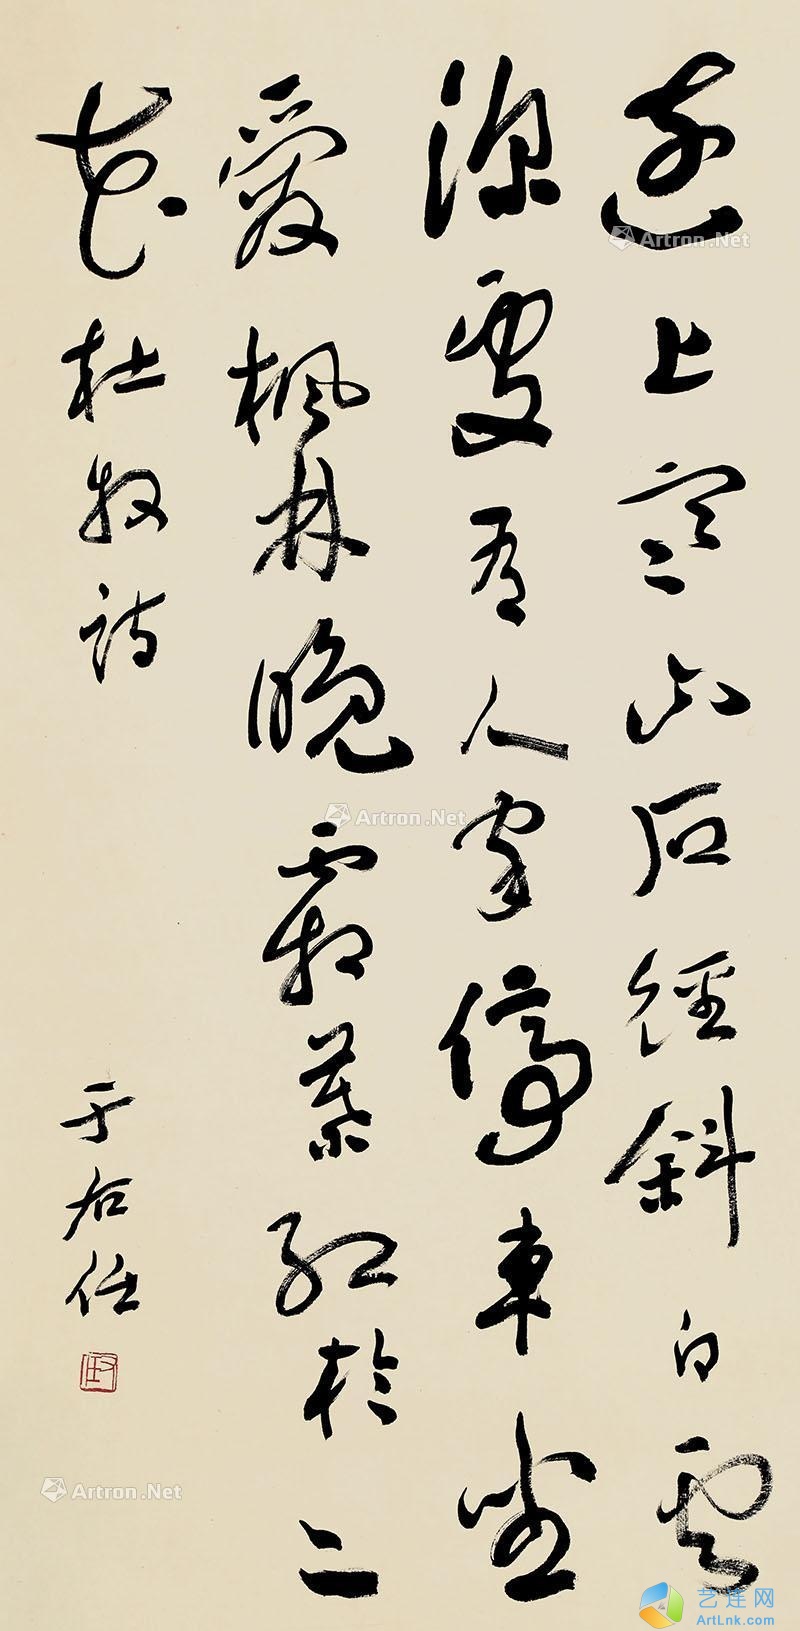 遠上寒山石徑斜白雲
深處有人家停車坐
愛楓林晚霜葉紅於二
花杜牧詩
于右任
右任
Artron.Net
Artron.Net
Artron.Net
艺连网
ArtLnk.com